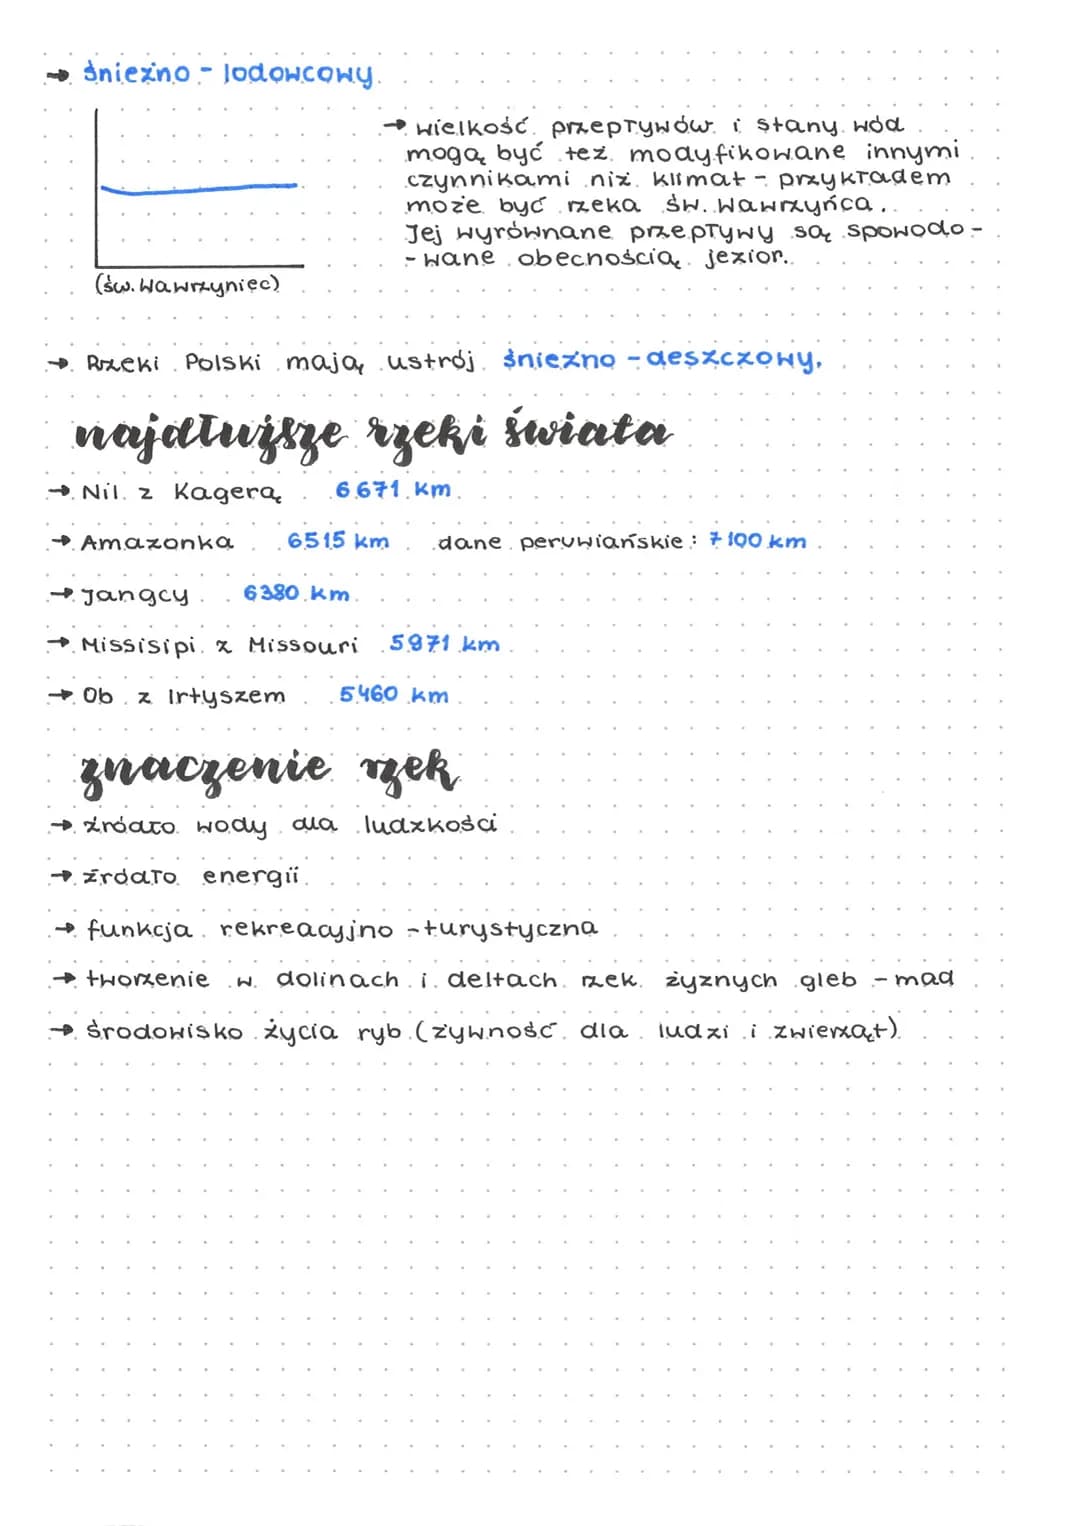 → śnieżno - lodowcowy
→ wielkość przepływów i stany wód
mogą być też modyfikowane innymi
czynnikami niż klimat - przykładem
może być rzeka św. Wawrzyńca.
Jej wyrównane przepływy są spowodo-
-wane obecnością jezior.
(św. Wawrzyniec)
→ Rzeki Polski mają ustrój śnieżno - deszczowy.
najdłuższe rzeki świata
→ Nil z Kagerą 6671 km
→ Amazonka 6515 km dane peruwiańskie: 7100 km
→ Jangcy 6380 km
→ Missisipi z Missouri 5971 km
→ Ob z Irtyszem 5460 km
znaczenie rzek
→ źródło wody dla ludzkości
→ źródło energii
→ funkcja rekreacyjno - turystyczna
→ tworzenie w dolinach i deltach rzek żyznych gleb - mad
→ środowisko życia ryb (żywność dla ludzi i zwierząt)